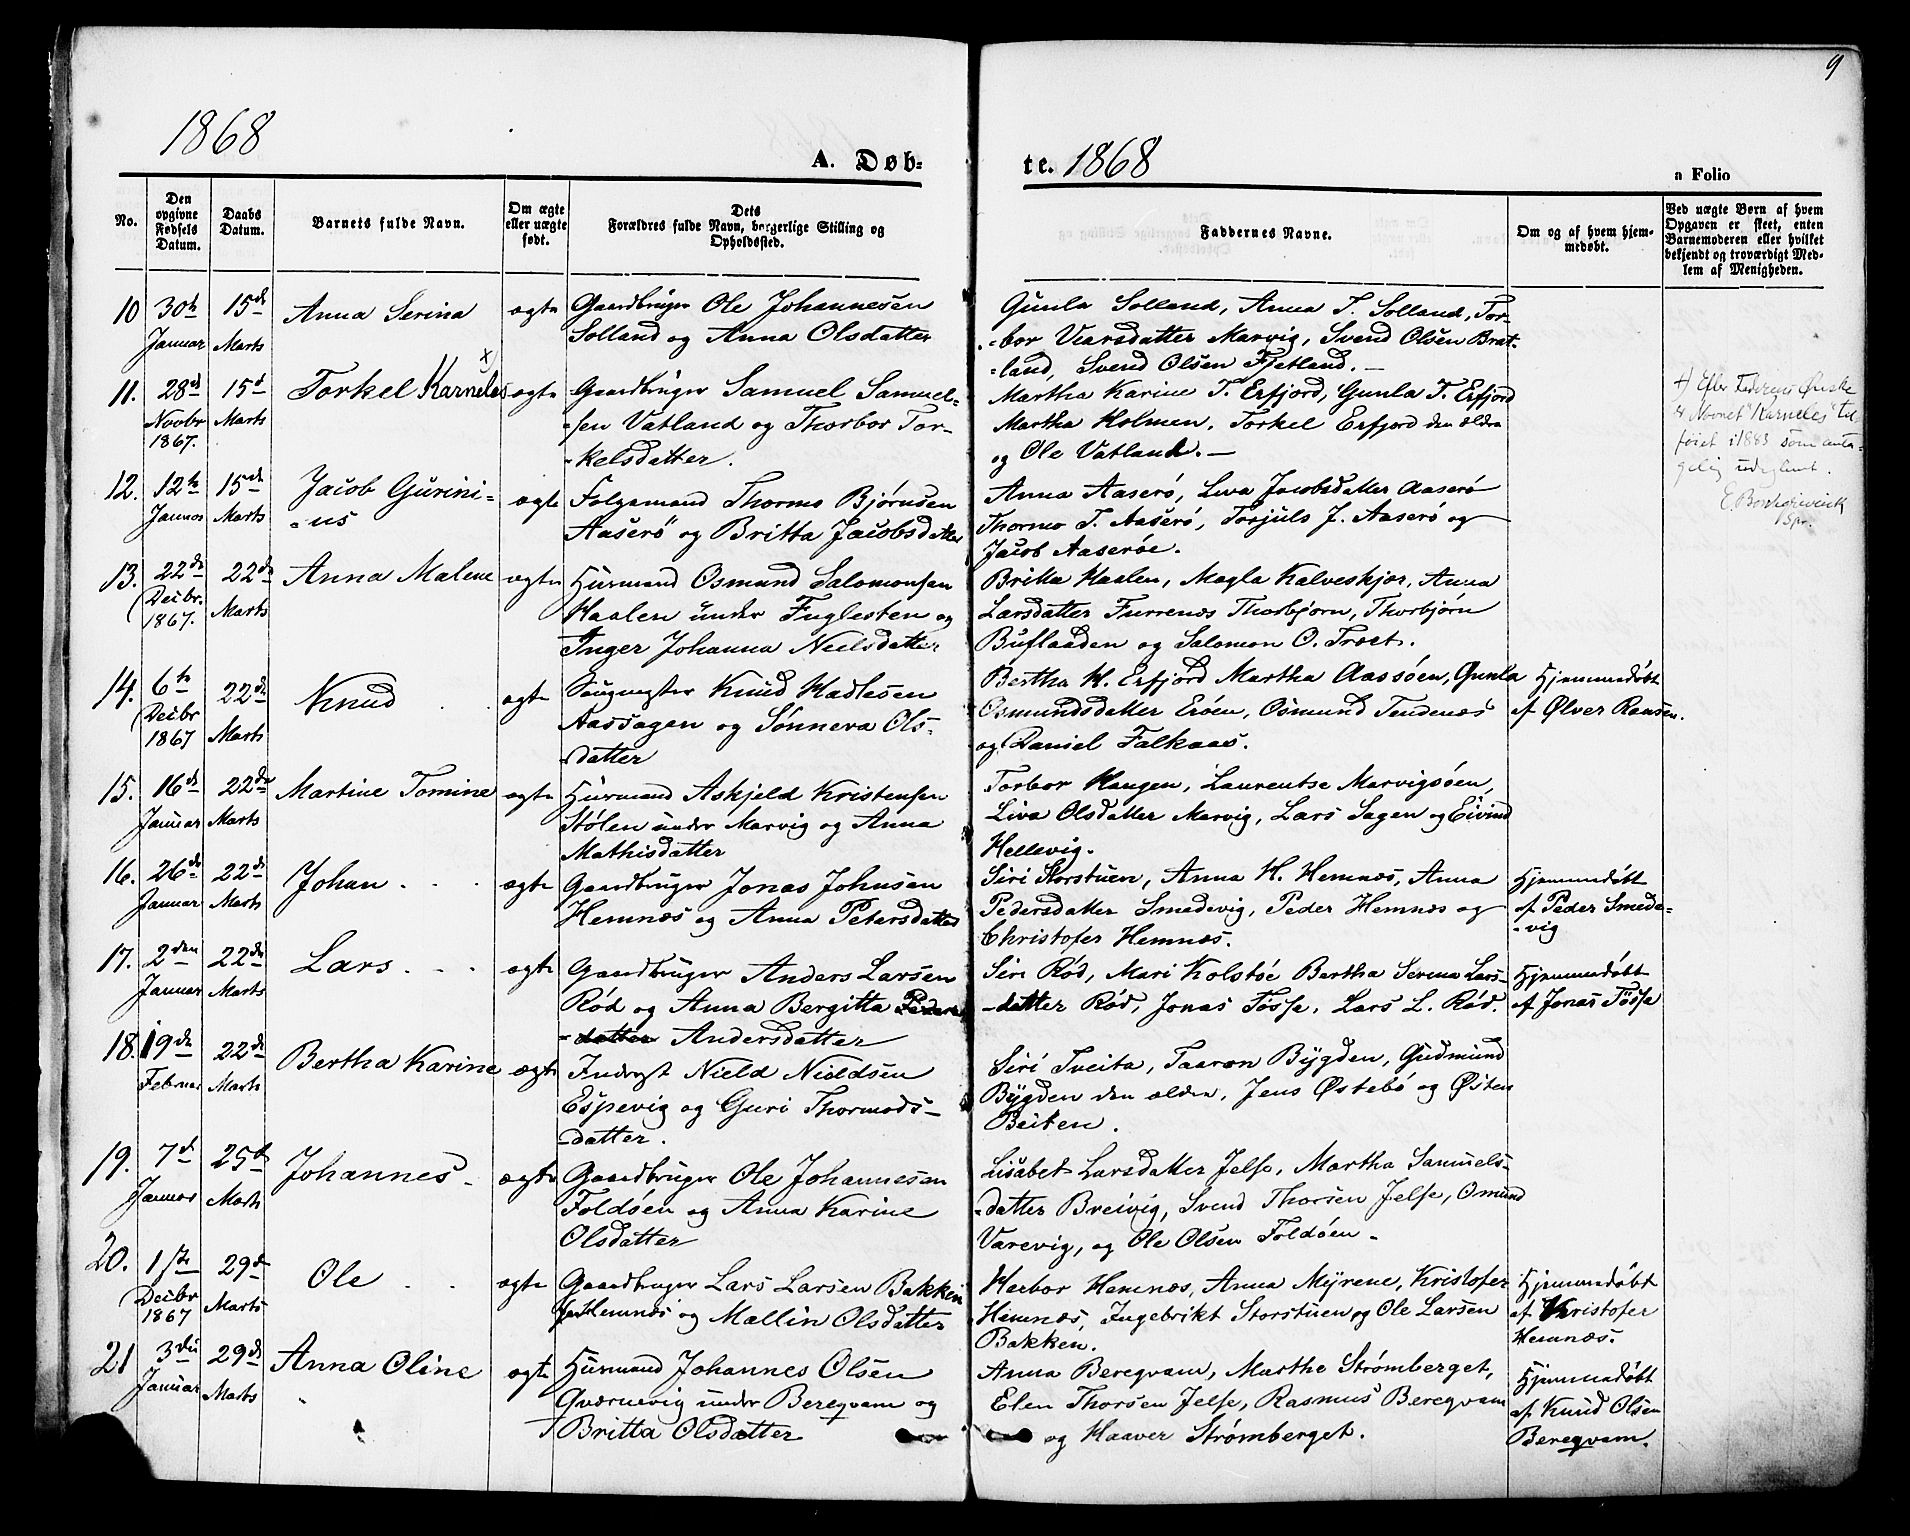 9
1868
A. Døb-
te. 1868
a Folio
No.
Den opgivne Fødsels Datum.
Daabs Datum.
Barnets fulde Navn.
Om ægte eller uægte født.
Dets Forældres fulde Navn, borgerlige Stilling og Opholdssted.
Faddernes Navne.
Om og af hvem hjemmedøbt.
Ved uægte Børn af hvem Opgaven er skeet, enten Barnemoderen eller hvilket bekjendt og troværdigt Medlem af Menigheden.
10 30te Januar 15de Marts Anna Serina ægte Gaardbruger Ole Johannesen
Solland og Anna Olsdatter
Gunla Solland, Anna T. Solland, Tor-
-bor Viarsdatter Marvig, Svend Olsen Brat-
-land, Svend Olsen Fjetland. -
11. 28de Novbr 1867. 15d Marts Torkel Karneles x) ægte Gaardbruger Samuel Samuel-
-sen Vatland og Thorbor Tor-
-kelsdatter.
Martha Karine T. Erfjord, Gunla T. Erfjord
Martha Holmen, Torkel Erfjord den ældre
og Ole Vatland. -
x) Efter Ønske
er Navnet "Karneles" til
føiet i 1883 som
udeglemt.
12. 12te Januar 15de Marts Jacob Gurini-
-us ægte Folgemand Thormo Bjørnsen
Aaserö og Britta Jacobsdatter
Anna Aaserö, Liva Jacobsdatter Aaserö
Thormo T. Aaserö, Torjuls J. Aaserö og
Jacob Aaseröe.
13. 22de Decbr. 1867. 22de Marts Anna Malene ægte Husmand Osmund Salomonsen
Haalen under Fuglesten og
Inger Johanna Nielsdatter
Brita Haalen, Magla Kalveskjær, Anna
Larsdatter Furrenæs Thorbjørn, Thorbjørn
Buflaaden og Salomon O. Træet.
14. 6te Decbr 1867 22de Marts Knud ægte Knud Hadlesen
Aassagen og Sønneva Ols-
-datter
Bertha H. Erfjord Martha Aassöen, Gunla
Osmundsdatter Eröen, Osmund Tendenæs
og Daniel Falkaas.
Hjemmedøbt
af Ølver Ransen.
15. 16de Januar 22de Marts Martine Tomine ægte Husmand Askjeld Kristensen
Stölen under Marvig og Anna
Mathisdatter
Torbor Haugen, Laurentse Marvigsöen,
Liva Olsdatter Marvig, Lars Sagen og Eivind
Hellevig.
16. 26de Januar 22de Marts Johan ægte Gaardbruger Jonas Johnsen
Hemnæs og Anna Petersdatter
Siri Storstuen, Anna H. Hemnæs, Anna
Pedersdatter Smedevig, Peder Hemnæs og
Christofer Hemnæs.
Hjemmedøbt
af Peder Smede-
-vig
17. 2den Januar 22de Marts Lars ægte Gaardbruger Anders Larsen
Rød og Anna Bergitta Peders
-datter Andersdatter
Siri Rød, Mari Kolstöe Bertha Serina Lars-
-datter Rød, Jonas Tösse, Lars L. Rød.
Hjemmedøbt
af Jonas Tösse
18. 19de Februar 22de Marts Bertha Karine ægte Inderst Nield Nieldsen
Espevig og Guri Thormods-
-datter.
Siri Tveita, Taaron Bygden, Gudmund
Bygden den ældre, Jens Østebö og Østen
Beiten.
19. 7d Januar 25d Marts Johannes ægte Gaardbruger Ole Johannesen
Foldöen og Anna Karine
Olsdatter
Lisabet Larsdatter Jelse, Martha Samuels-
-datter Breivig, Svend Thorsen Jelse, Omund
Varevig, og Ole Olsen Foldöen -
20. 1ste Decbr 1867 29de Marts Ole ægte Gaardbruger Lars Larsen Bakken
Hemnæs og Mallin Olsdatter
Herbor Hemnæs, Anna Myrene, Kristofer
Hemnæs, Ingebrikt Storstuen og Ole Larsen
Bakken.
Hjemmedøbt
af Kristofer
Hemnæs.
21 3die Januar 29de Marts Anna Oline ægte Husmand Johannes Olsen
Qværnevig under Bereqvam og
Britta Olsdatter
Anna Bereqvam, Marthe Strømberget,
Elen Thorsen Jelse, Rasmus Bereqvam
og Haaver Strømberget.
Hjemmedøbt
af Knud Olsen
Bereqvam.